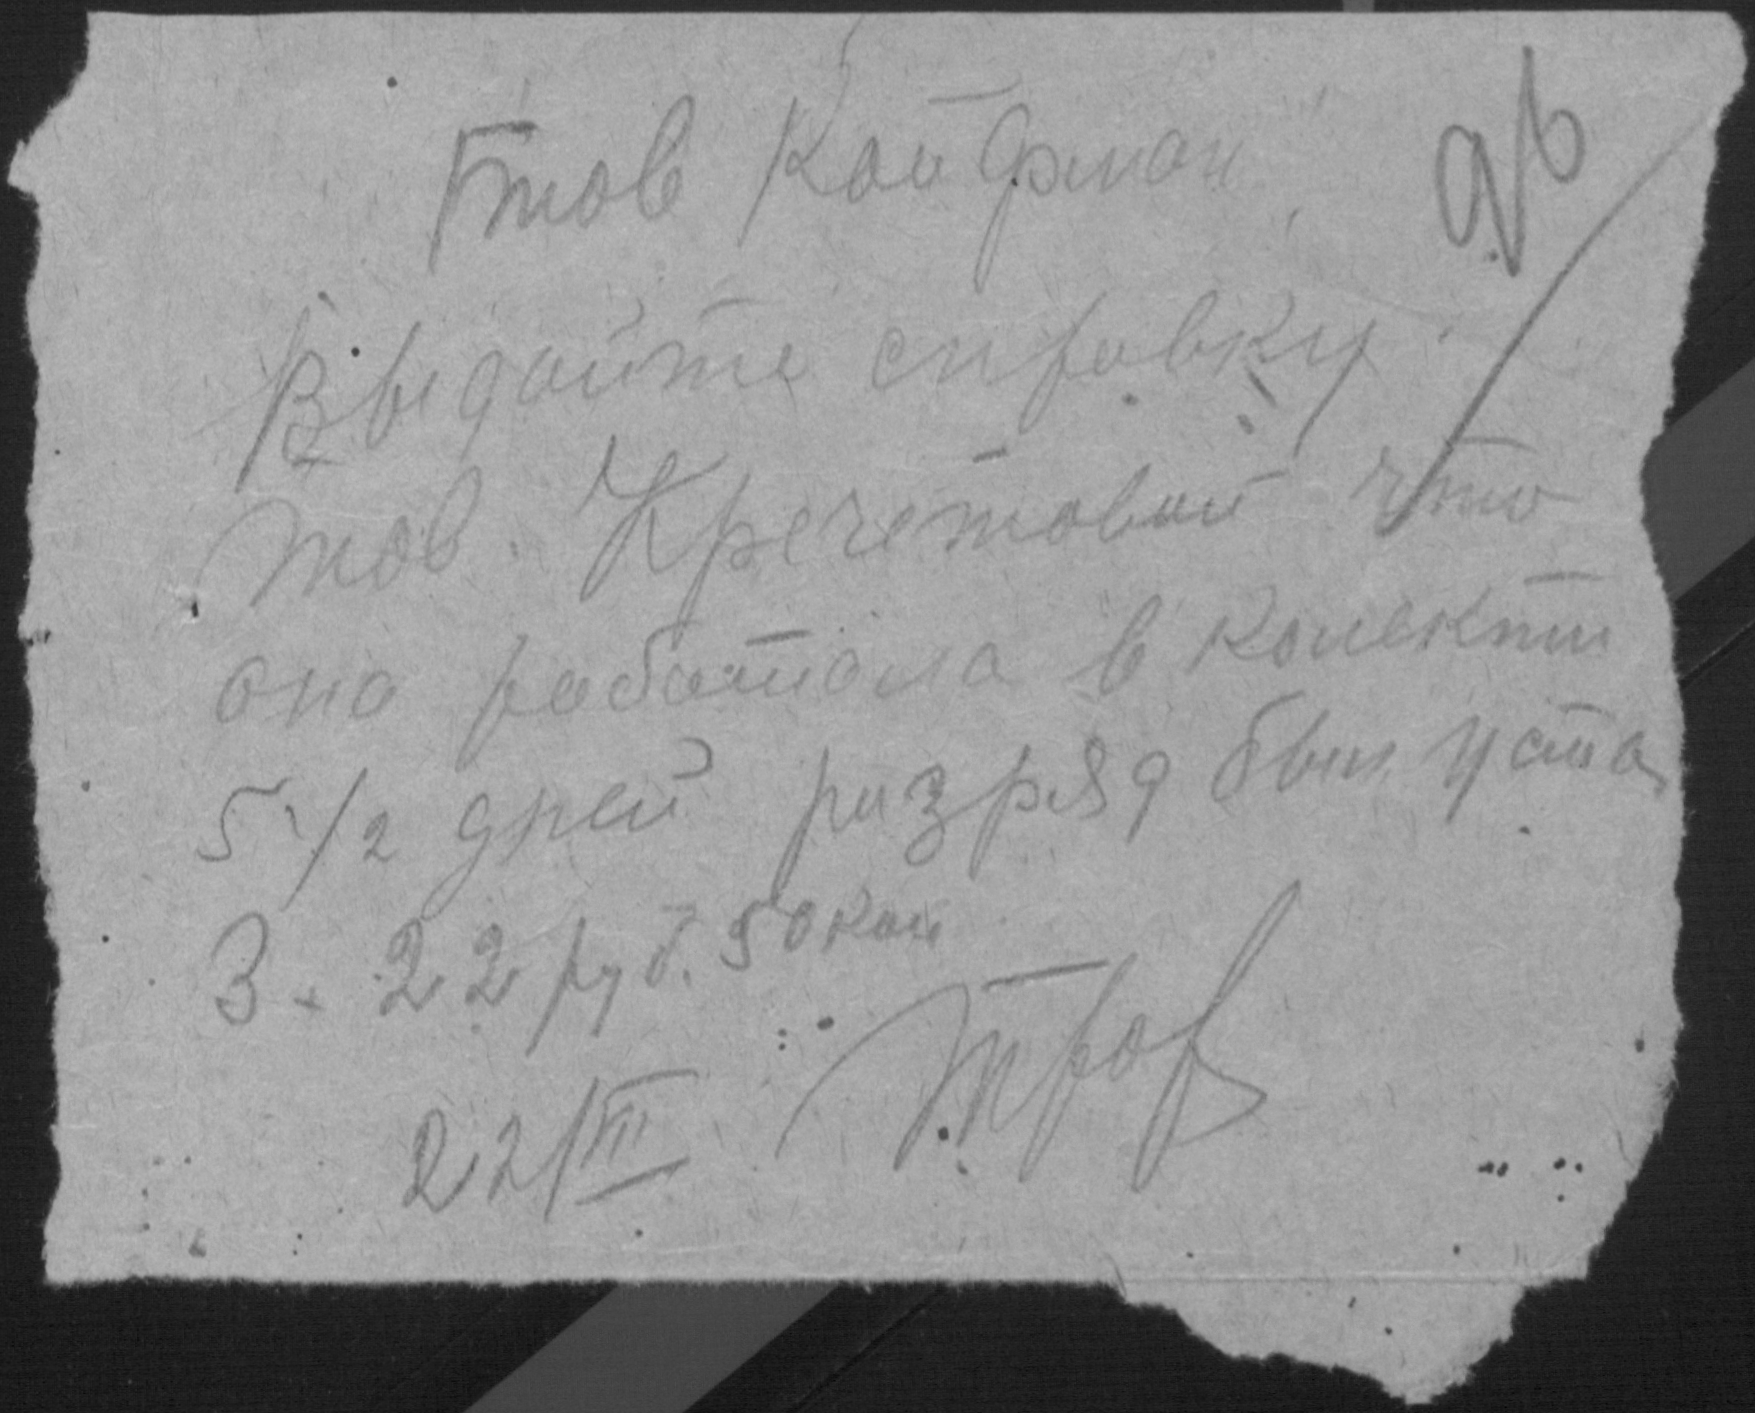 тов Кайфман
96
Выдайте справку
тов. Кречетовой что
она работала в колекти
5 1/2 дней разряд был уста
3. 22 руб. 50 коп
22/III